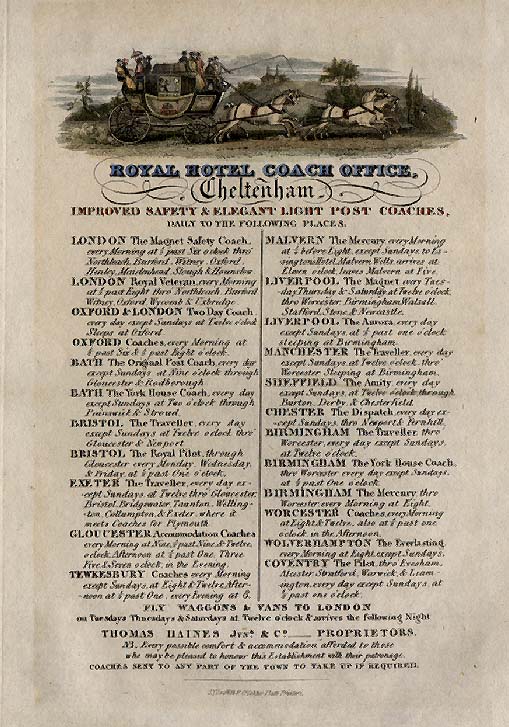 ROYAL HOTEL COACH OFFICE,
Cheltenham
IMPROVED SAFETY & ELEGANT LIGHT POST COACHES,
DAILY TO THE FOLLOWING PLACES.
LONDON The Magnet Safety Coach,
every Morning at ½ past Six o'clock thro'
Northleach, Burford, Witney, Oxford
Henley, Maidenhead Slough & Hounslow
LONDON Royal Veteran, every Morning
at ½ past Eight thro' Northleach, Burford
Witney, Oxford, Wycomb & Uxbridge
OXFORD & LONDON Two Day Coach
every day except Sundays at Twelve o'clock
Sleeps at Oxford
OXFORD Coaches, every Morning at
½ past Six & ½ past Eight o'clock.
BATH The Original Post Coach, every day
except Sundays, at Nine o'clock through
Gloucester & Rodborough
BATH The York House Coach, every day
except Sundays at Two o'clock through
Painswick & Stroud.
BRISTOL The Traveller, every day
except Sundays at Twelve o'clock thro'
Gloucester & Newport
BRISTOL The Royal Pilot, through
Gloucester every Monday, Wednesday,
& Friday, at ½ past One o'clock.
EXETER The Traveller, every day ex-
-cept Sundays, at Twelve thro' Gloucester,
Bristol, Bridgewater, Taunton, Welling-
-ton, Collumpton, & Exeter where it
meets Coaches for Plymouth.
GLOUCESTER Accommodation Coaches
every Morning at Nine, ½ past Nine, & Twelve
o'clock, Afternoon at ½ past One, Three
Five & Seven o'clock, in the Evening.
TEWKESBURY Coaches every Morning
except Sundays, at Eight & Twelve, After-
-noon at ½ past One, every Evening at 6.
MALVERN The Mercury, every Morning
at before Eight, except Sundays, to Es-
-singtons Hotel, Malvern Wells, arrives at
Eleven o'clock, leaves Malvern at Five.
LIVERPOOL The Magnet every Tues-
day, Thursday & Saturday at Twelve o'clock
thro' Worcester, Birmingham, Walsall
Stafford, Stone, & Newcastle.
LIVERPOOL The Aurora, every day
except Sundays, at ½ past one o'clock
sleeping at Birmingham.
MANCHESTER The Traveller, every day
except Sundays, at Twelve o'clock, thro'
Worcester Sleeping at Birmingham.
SHEFFIELD The Amity, every day
except Sundays, at Twelve o'clock through
Burton, Derby, & Chesterfield.
CHESTER The Dispatch, every day ex-
-cept Sundays, thro' Newport &
BIRMINGHAM The Traveller, thro'
Worcester, every day except Sundays,
at Twelve o'clock.
BIRMINGHAM The York House Coach,
thro' Worcester every day except Sundays,
at ½ past One o'clock.
BIRMINGHAM The Mercury thro'
Worcester, every Morning at Eight.
WORCESTER Coaches, every Morning
at Eight & Twelve, also at ½ past one
o'clock, in the Afternoon.
WOLVERHAMPTON The Everlasting,
every Morning at Eight, except Sundays.
COVENTRY The Pilot, thro' Evesham,
Alcester, Stratford, Warwick, & Leam-
-ington, every day except Sundays, at
½ past one o'clock.
FLY WAGGONS & VANS TO LONDON
on Tuesdays Thursdays & Saturdays at Twelve o'clock & arrives the following Night
THOMAS HAINES Junr. & Co. PROPRIETORS.
NB. Every possible comfort & accommodation afforded to those
who may be pleased to honour this Establishment with their patronage.
COACHES SENT TO ANY PART OF THE TOWN TO TAKE UP IF REQUIRED.